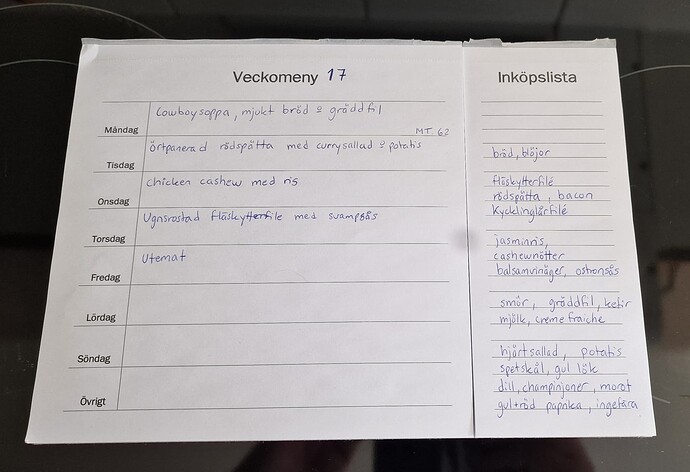 Veckomeny 17
Cowboysoppa, mjukt bröd & gräddfil
Måndag
MT. 62
Örtpanerad rödspätta med currysallad & potatis
Tisdag
Chicken cashew med ris
Onsdag
Ugnsrostad fläskytterfile med svampsås
Torsdag
Utemat
Fredag
Lördag
Söndag
Övrigt
Inköpslista
bröd, blöjor
fläskytterfilé
rödspätta, bacon
Kycklinglårfilé
jasminris,
cashewnötter
balsamvinäger, ostronsås
smör, gräddfil, kefir
mjölk, creme fraiche
hjärtsallad, potatis
spetskål, gul lök
dill, champinjoner, morot
gul+röd paprika, ingefära